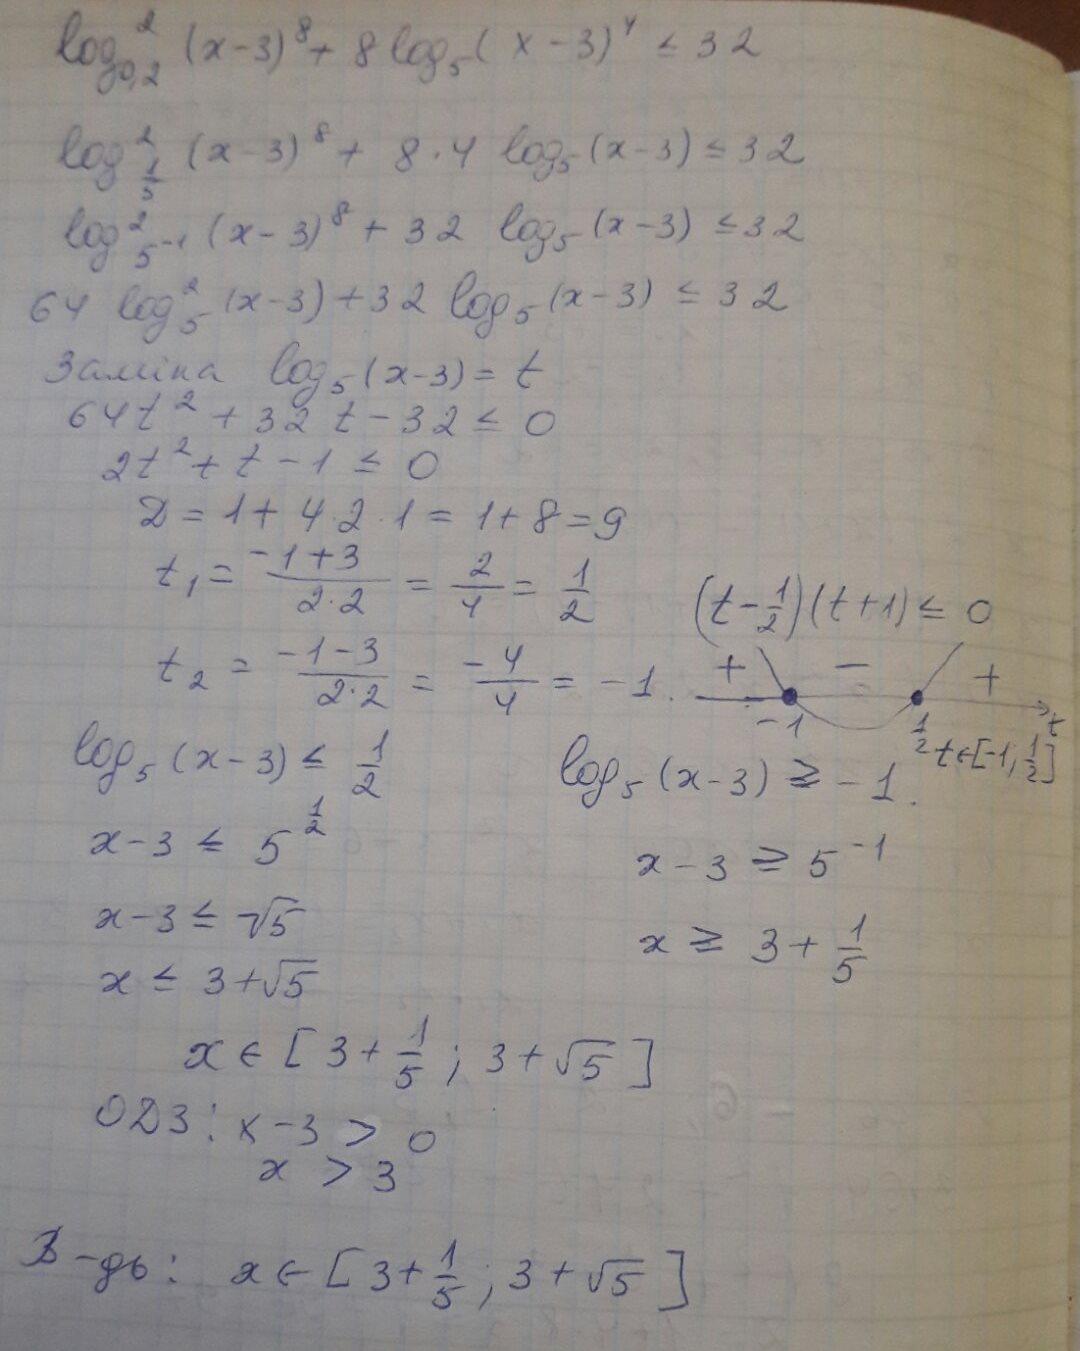 log²₀,₂ (x-3)⁸ + 8 log₅ (x-3)⁴ ≤ 32
log²_{1/5} (x-3)⁸ + 8·4 log₅ (x-3) ≤ 32
log²_{5⁻¹} (x-3)⁸ + 32 log₅ (x-3) ≤ 32
64 log²₅ (x-3) + 32 log₅ (x-3) ≤ 32
Заміна log₅ (x-3) = t
64t² + 32t - 32 ≤ 0
2t² + t - 1 ≤ 0
D = 1 + 4·2·1 = 1 + 8 = 9
t₁ = (-1+3)/(2·2) = 2/4 = 1/2
(t - 1/2)(t+1) ≤ 0
t₂ = (-1-3)/(2·2) = -4/4 = -1.
+ − +
-1 1/2 t
t ∈ [-1; 1/2]
log₅ (x-3) ≤ 1/2 log₅ (x-3) ≥ -1.
x-3 ≤ 5^{1/2} x-3 ≥ 5⁻¹
x-3 ≤ √5 x ≥ 3 + 1/5
x ≤ 3+√5
x ∈ [3 + 1/5 ; 3 + √5]
ОДЗ: x-3 > 0
x > 3
В-дь: x ∈ [3 + 1/5 ; 3 + √5]